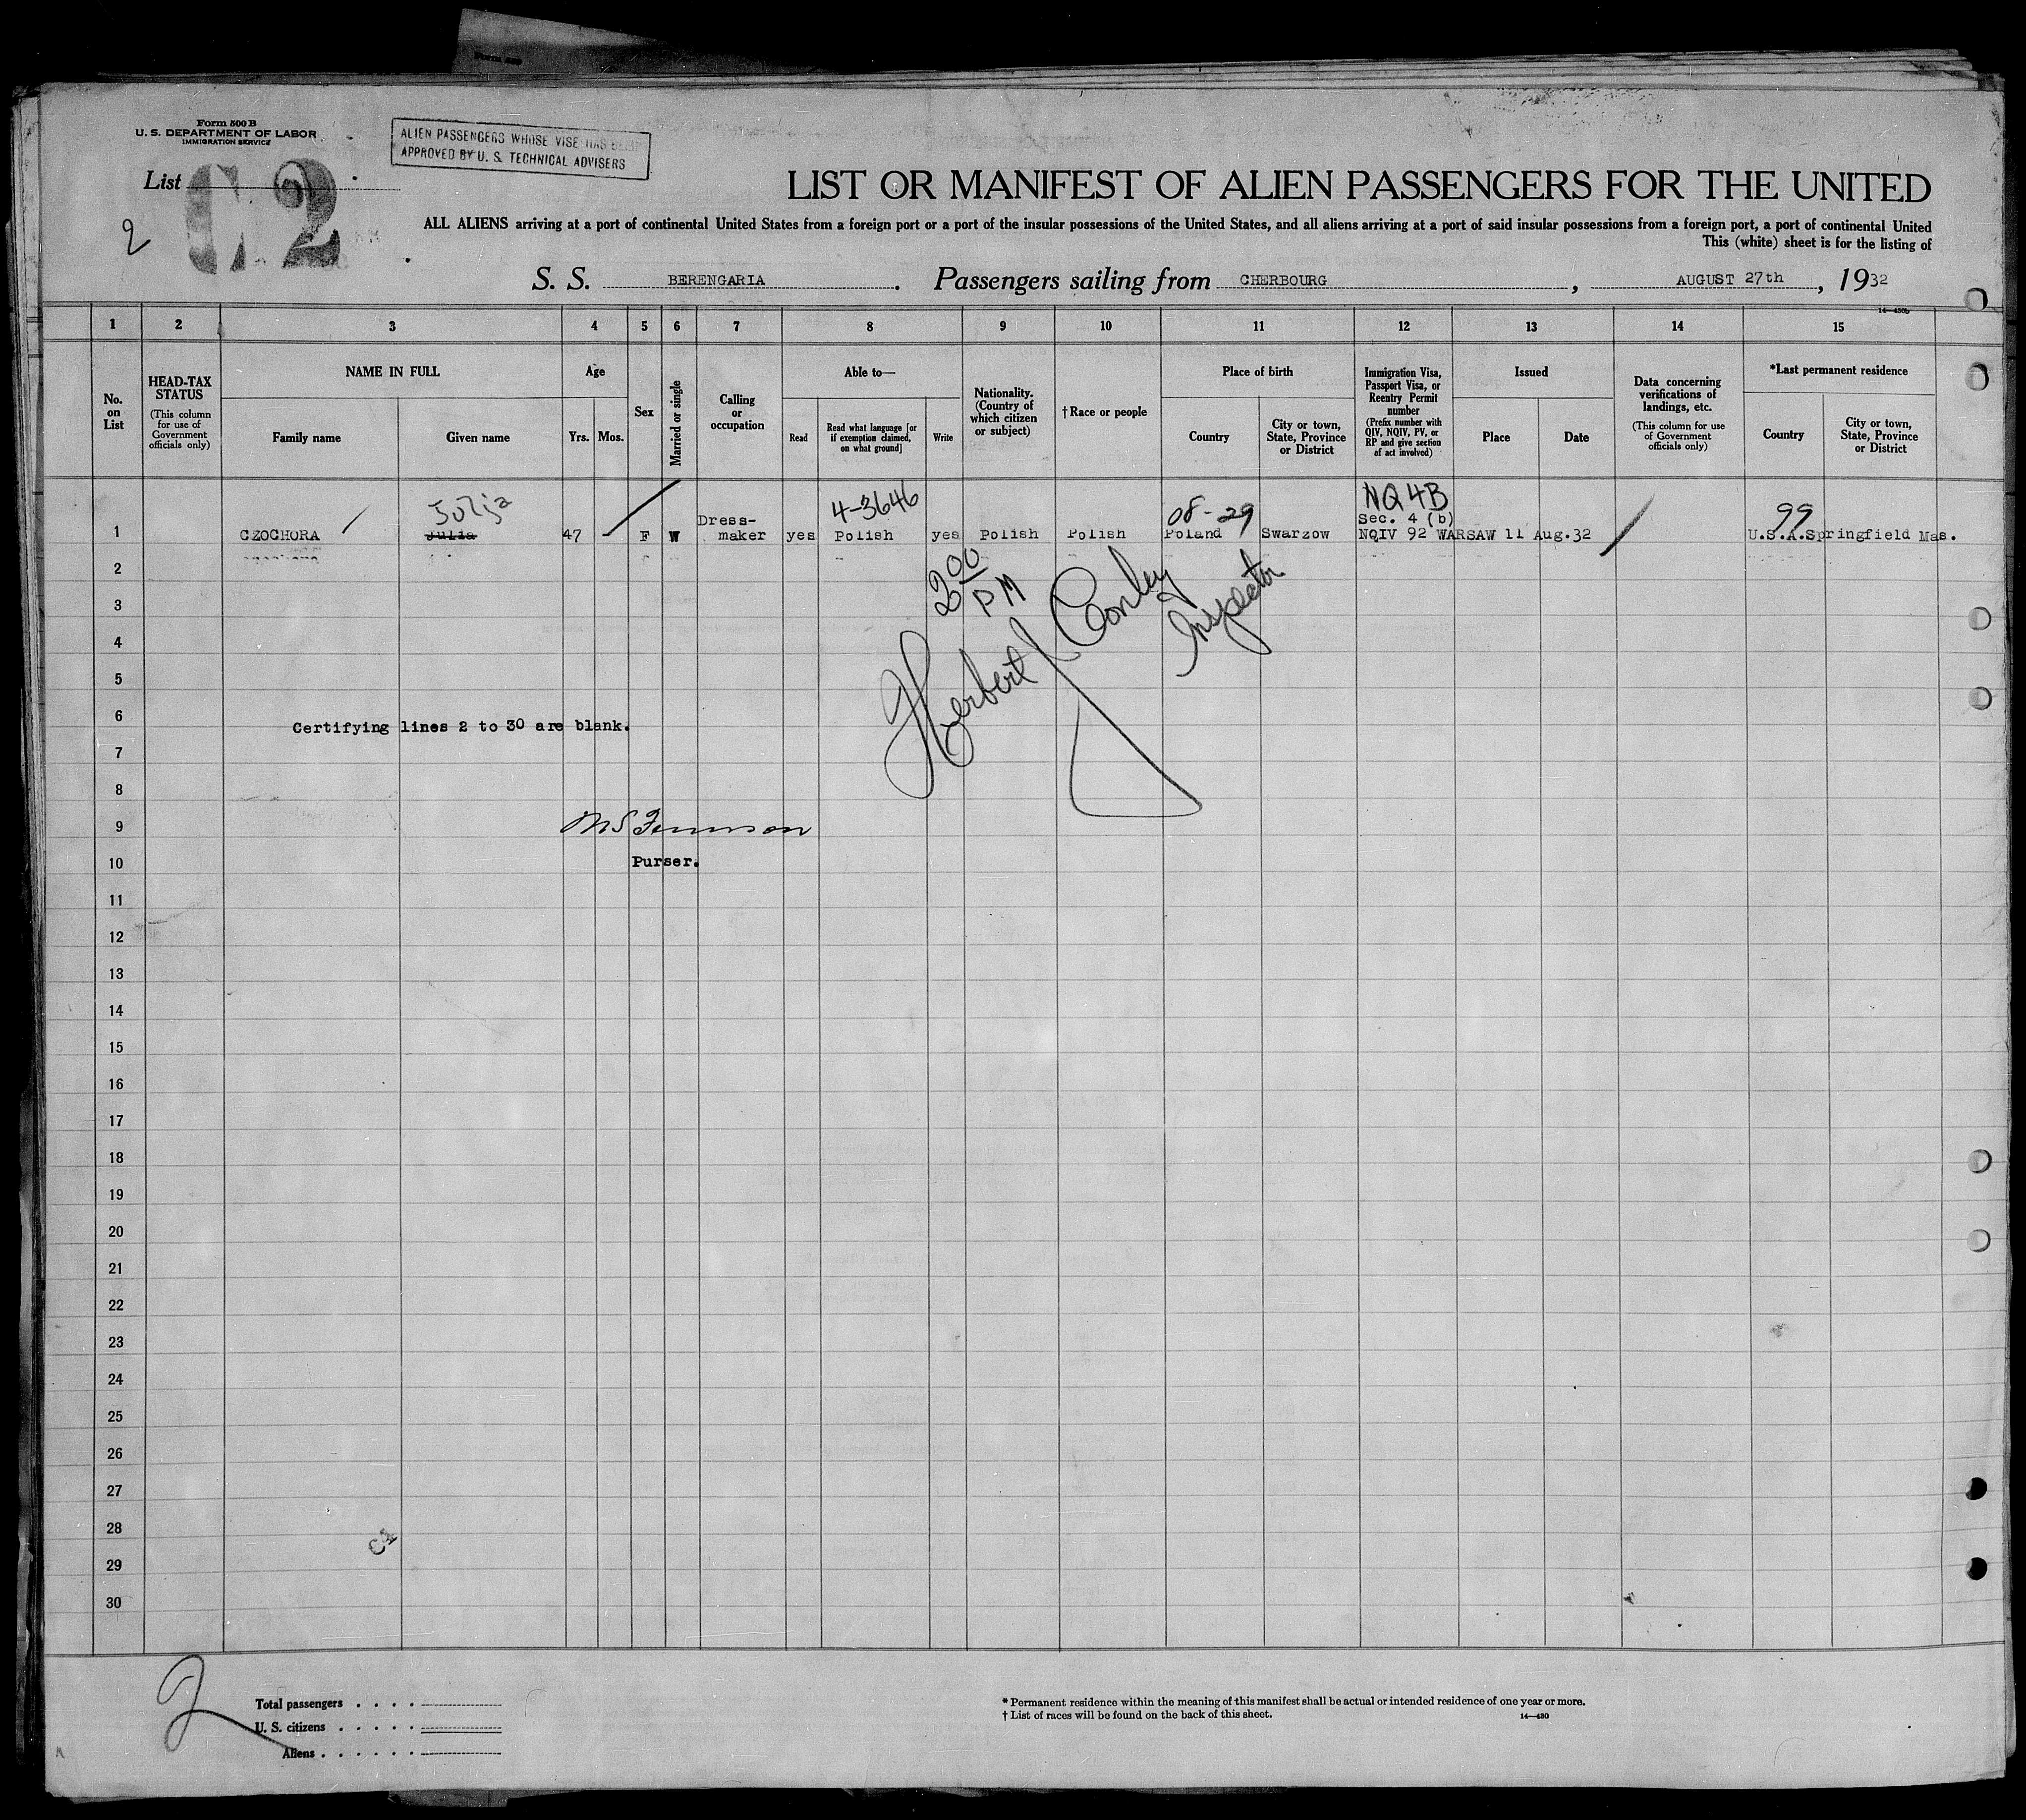 Form 500 B
U. S. DEPARTMENT OF LABOR
IMMIGRATION SERVICE
ALIEN PASSENGERS WHOSE VISE HAS BEEN
APPROVED BY U. S. TECHNICAL ADVISERS
List
C 2
2
LIST OR MANIFEST OF ALIEN PASSENGERS FOR THE UNITED
ALL ALIENS arriving at a port of continental United States from a foreign port or a port of the insular possessions of the United States, and all aliens arriving at a port of said insular possessions from a foreign port, a port of continental United
This (white) sheet is for the listing of
S. S. BERENGARIA . Passengers sailing from CHERBOURG , AUGUST 27th , 1932
14—430b
1 2 3 4 5 6 7 8 9 10 11 12 13 14 15
No. on List
HEAD-TAX STATUS
(This column for use of Government officials only)
NAME IN FULL
Family name
Given name
Age
Yrs.
Mos.
Sex
Married or single
Calling or occupation
Able to—
Read
Read what language [or if exemption claimed, on what ground]
Write
Nationality. (Country of which citizen or subject)
†Race or people
Place of birth
Country
City or town, State, Province or District
Immigration Visa, Passport Visa, or Reentry Permit number
(Prefix number with QIV, NQIV, PV, or RP and give section of act involved)
Issued
Place
Date
Data concerning verifications of landings, etc.
(This column for use of Government officials only)
*Last permanent residence
Country
City or town, State, Province or District
Julija 4-3646 08-29 NQ 4B 99
Dress- Sec. 4 (b)
1 CZOCHORA Julia 47 F W maker yes Polish yes Polish Polish Poland Swarzow NQIV 92 WARSAW 11 Aug.32 U.S.A. Springfield Mas.
2
2 00 PM
3
Herbert J Conley
Inspector
4
5
6
Certifying lines 2 to 30 are blank.
7
8
9
10
Purser.
11
12
13
14
15
16
17
18
19
20
21
22
23
24
25
26
27
28
29
30
2
Total passengers
U. S. citizens
Aliens
* Permanent residence within the meaning of this manifest shall be actual or intended residence of one year or more.
† List of races will be found on the back of this sheet.
14—430